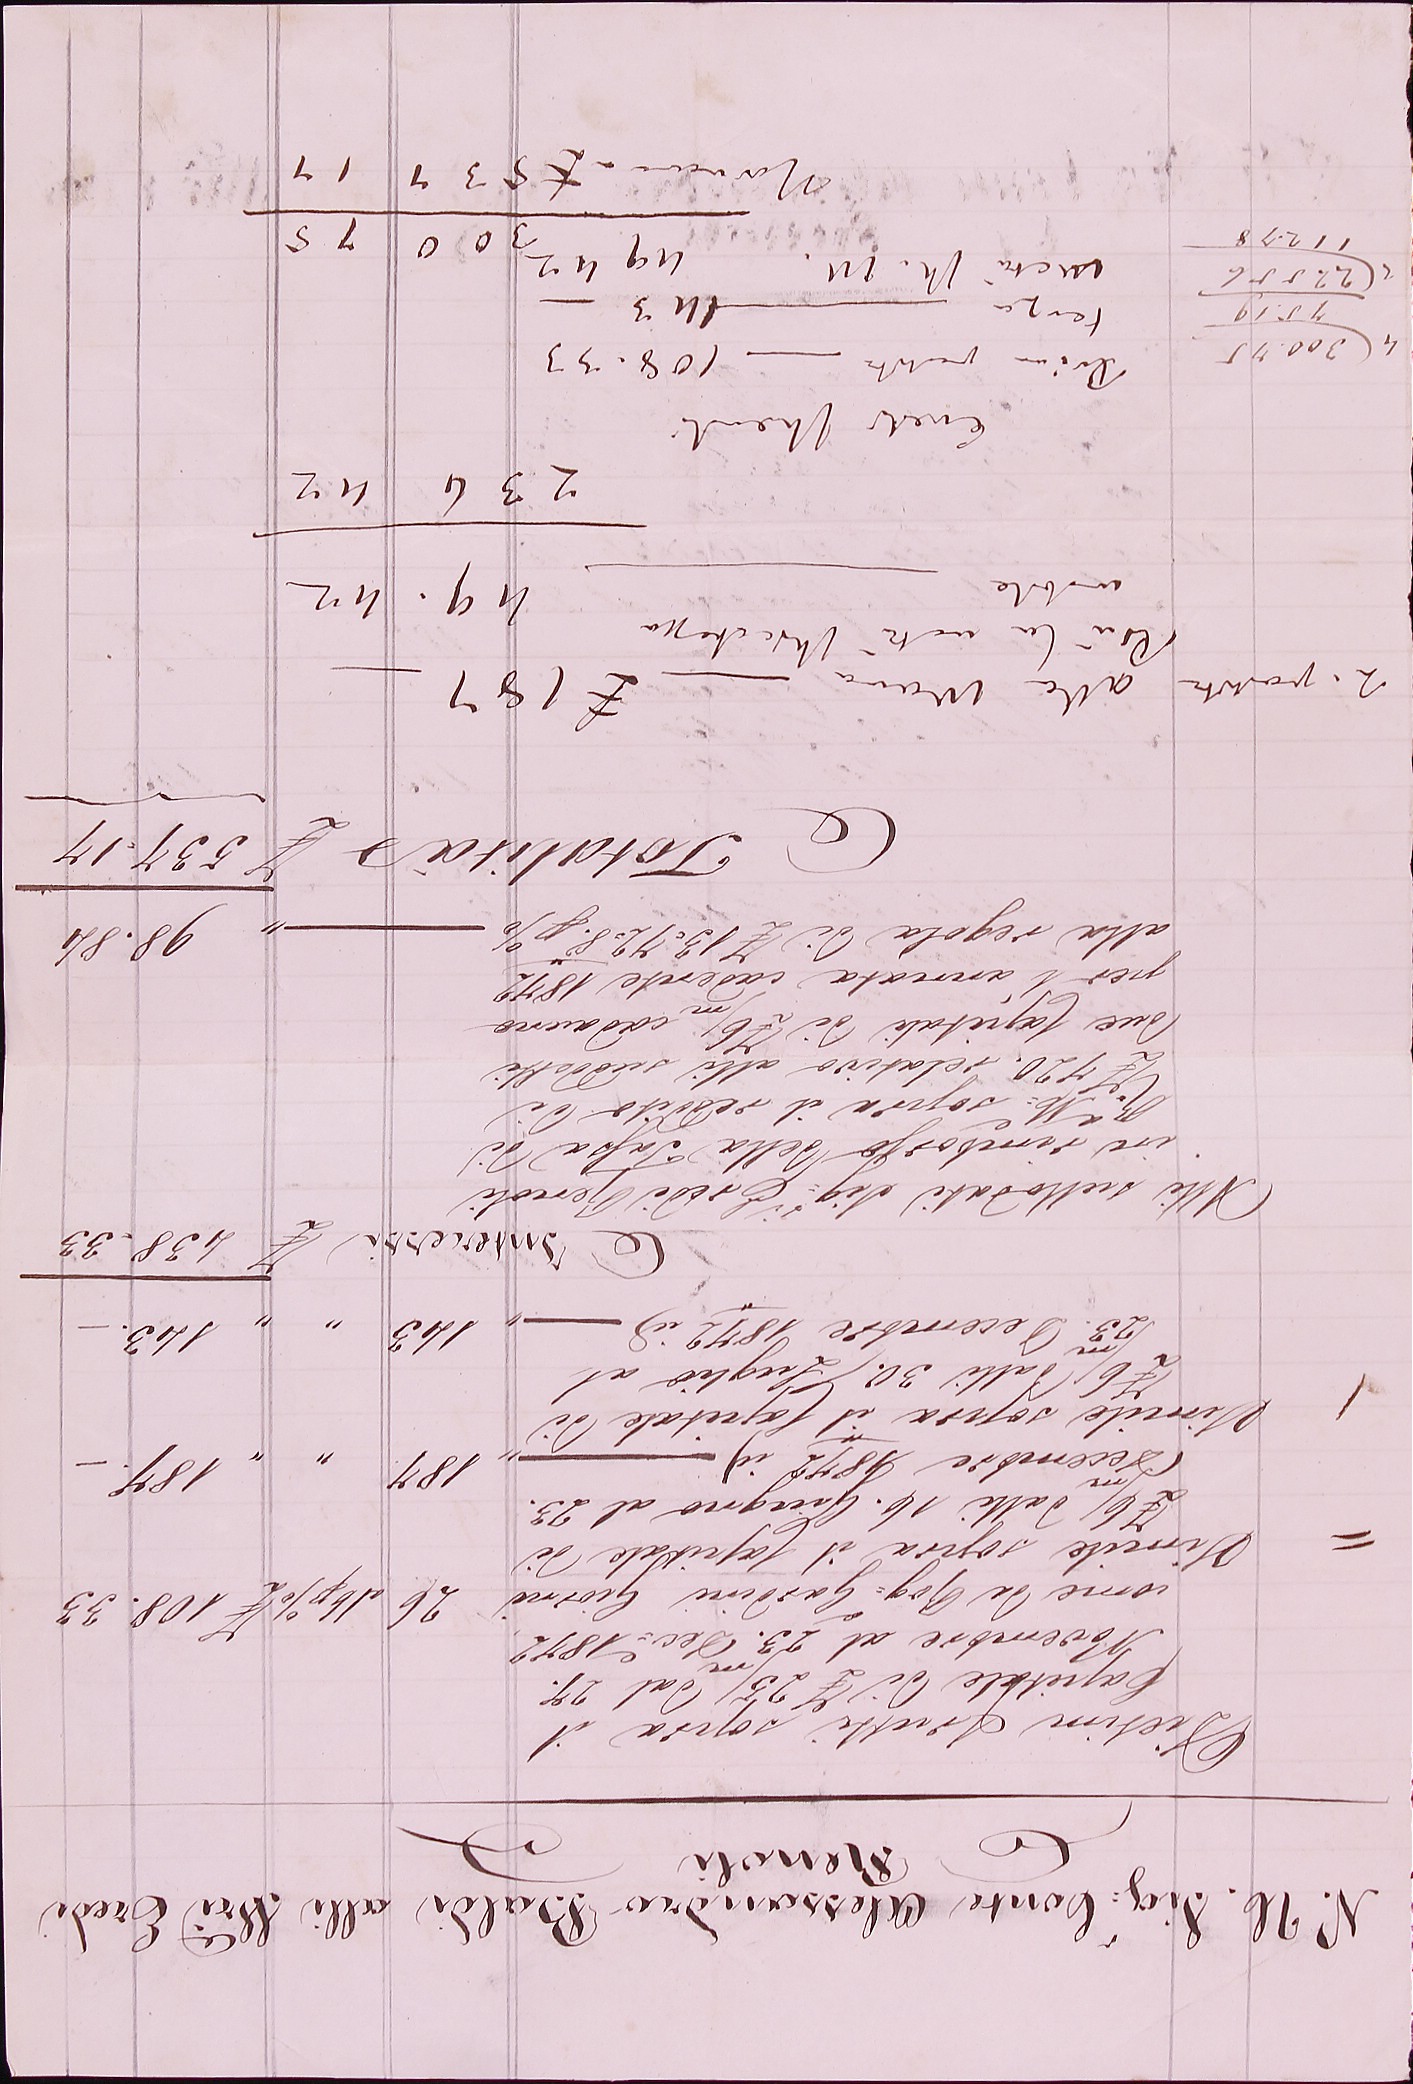 N. H. Sig.r Conte Alessandro Baldi alli Sri Eredi
Renoli
Dietim frutti sopra il
Capitale di £ 25/m dal 27.
Novembre al 23. Dec.e 1872,
come da Rog. Gardini Giorni 26 al 6 p% £ 108.33
= Simile sopra il Capitale di
£ 6/m dalli 16. Giugno al 23.
Decembre 1872 id — " 187 " " " 187.—
1 Simile sopra il Capitale di
£ 6/m dalli 30. Luglio at
23. Decembre 1872 id — " 143 " " " 143.—
Interessi £ 438.33
Alli sullodati Sig.i Eredi Renoli
in rimborso della Tassa di
R. M. sopra il reddito di
£ 720. relativo alli suddetti
due Capitali di £ 6/m cadauno
per l'annata cadente 1872
alla regola di £ 13.72.8. p% — " 98.84
Totalità £ 537.17
2. partite alla Maria — £ 187 —
Più la metà Ricchezza
mobile — 49.42
234 42
Prima partita — 108.33
terza — 143 —
metà R. M. 49 42
300 75
£ 537 17
300.75 4
75.19
225.56 2
112.78